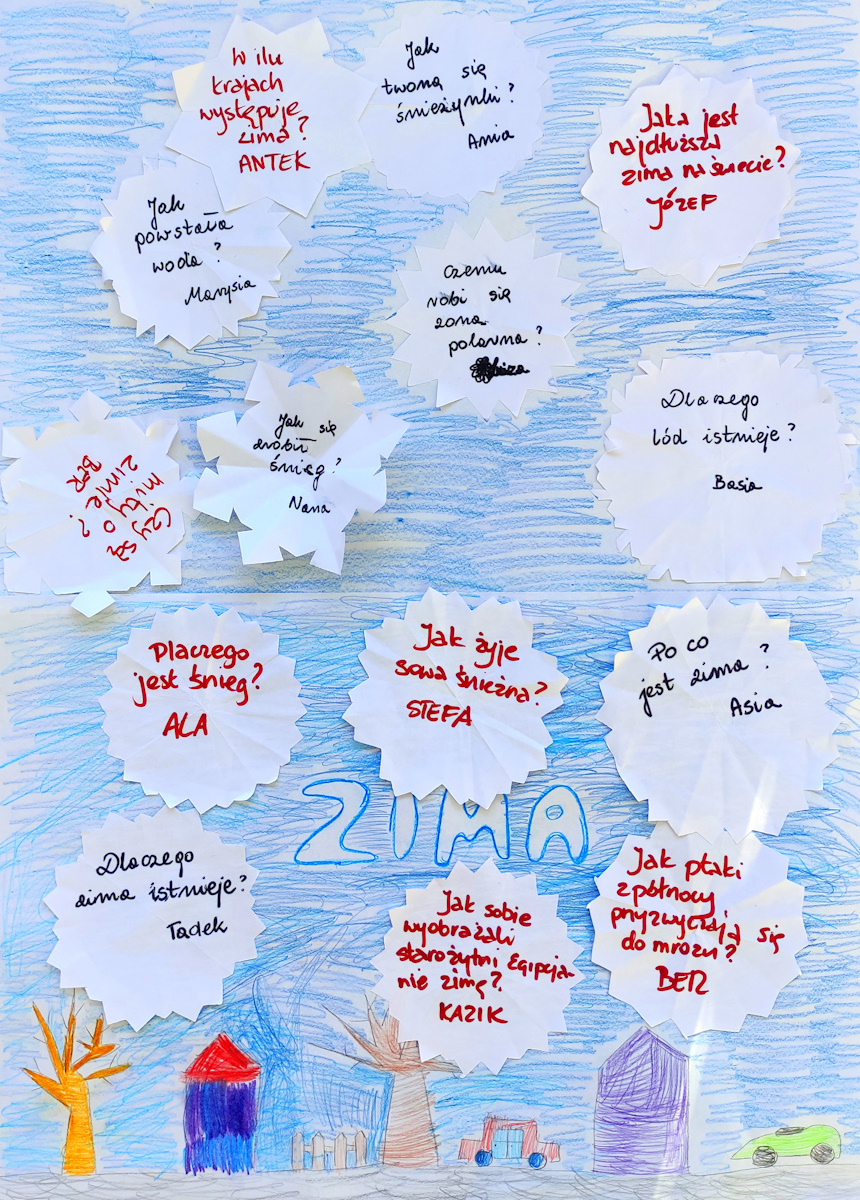 W ilu
krajach
występuje
zima?
ANTEK
Jak
tworzą się
śnieżynki?
Ania
Jaka jest
najdłuższa
zima na świecie?
JÓZEF
Jak
powstała
woda?
Marysia
Czemu
robi się
zorza
polarna?
Dlaczego
lód istnieje?
Basia
Jak się
zrobił
śnieg?
Nana
Czy są
mity o
zimie?
BER
Dlaczego
jest śnieg?
ALA
Jak żyje
sowa śnieżna?
STEFA
Po co
jest zima?
Asia
ZIMA
Dlaczego
zima istnieje?
Tadek
Jak sobie
wyobrażali
starożytni Egipcja-
nie zimę?
KAZIK
Jak ptaki
z północy
przyzwyczają się
do mrozu?
BER